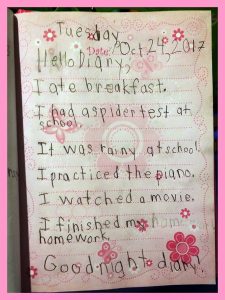 Tuesday
Date: Oct 24, 2017
Hello Diary,
I ate breakfast.
I had a spider test at
school.
It was rainy at school.
I practiced the piano.
I watched a movie.
I finished my hom
homework.
Good night diary!